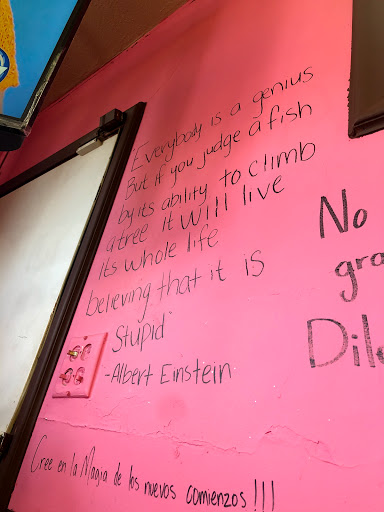 Everybody is a genius
But if you judge a fish
by its ability to climb
a tree it will live
its whole life
believing that it is
Stupid"
-Albert Einstein
No
gra
Dile
Cree en la Magia de los nuevos comienzos!!!